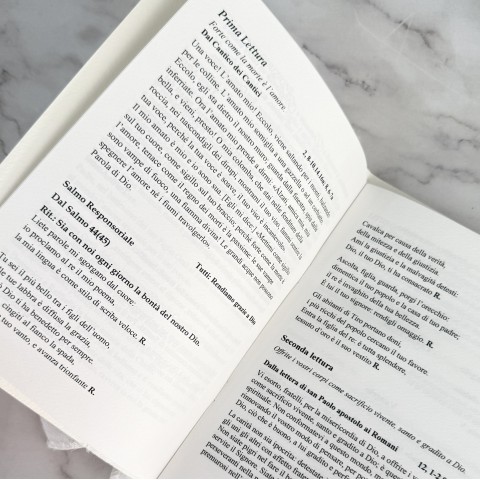 Prima Lettura
Forte come la morte è l'amore.
Dal Cantico dei Cantici
2, 8.10.14.16a; 8, 6-7a
Una voce! L'amato mio! Eccolo, viene saltando per i monti, balzando
per le colline. L'amato mio somiglia a una gazzella o ad un cerbiatto.
Eccolo, egli sta dietro il nostro muro; guarda dalla finestra, spia dalle
inferriate. Ora l'amato mio prende a dirmi: «Alzati, amica mia, mia
bella, e vieni, presto! O mia colomba, che stai nelle fenditure della
roccia, nei nascondigli dei dirupi, mostrami il tuo viso, fammi sentire la
tua voce, perché la tua voce è soave, il tuo viso è incantevole».
Il mio amato è mio e io sono sua. [Egli mi dice:] «Mettimi come sigillo
sul tuo cuore, come sigillo sul tuo braccio; perché forte come la morte è
l'amore, tenace come il regno dei morti è la passione: le sue vampe
sono vampe di fuoco, una fiamma divina! Le grandi acque non possono
spegnere l'amore né i fiumi travolgerlo».
Parola di Dio.
Tutti: Rendiamo grazie a Dio
Salmo Responsoriale
Dal Salmo 44(45)
Rit.: Sia con noi ogni giorno la bontà del nostro Dio.
Liete parole mi sgorgano dal cuore:
io proclamo al re il mio poema,
la mia lingua è come stilo di scriba veloce. R.
Tu sei il più bello tra i figli dell'uomo,
tue labbra è diffusa la grazia,
Dio ti ha benedetto per sempre.
cingiti al fianco la spada,
tuo vanto, e avanza trionfante R.
Cavalca per causa della verità,
della mitezza e della giustizia.
Ami la giustizia e la malvagità detesti:
Dio, il tuo Dio, ti ha consacrato R.
Ascolta, figlia, guarda, porgi l'orecchio:
dimentica il tuo popolo e la casa di tuo padre;
il re è invaghito della tua bellezza.
È lui il tuo signore: rendigli omaggio. R.
Gli abitanti di Tiro portano doni,
i più ricchi del popolo cercano il tuo favore.
Entra la figlia del re: è tutta splendore,
tessuto d'oro è il suo vestito R.
Seconda lettura
Offrite i vostri corpi come sacrificio vivente, santo e gradito a Dio.
Dalla lettera di san Paolo apostolo ai Romani
12, 1-2.
Vi esorto, fratelli, per la misericordia di Dio, a offrire i v
come sacrificio vivente, santo e gradito a Dio;
spirituale. Non conformatevi a questo mondo, ma
rinnovando il vostro modo di pensare, per po
Dio, ciò che è buono, a lui gradito e perfe
La carità non sia ipocrita: detestate
gli uni gli altri con affetto
Non siate pigri nel fare
servite il Signore. Siate
perseveranti nell
premurosi nell